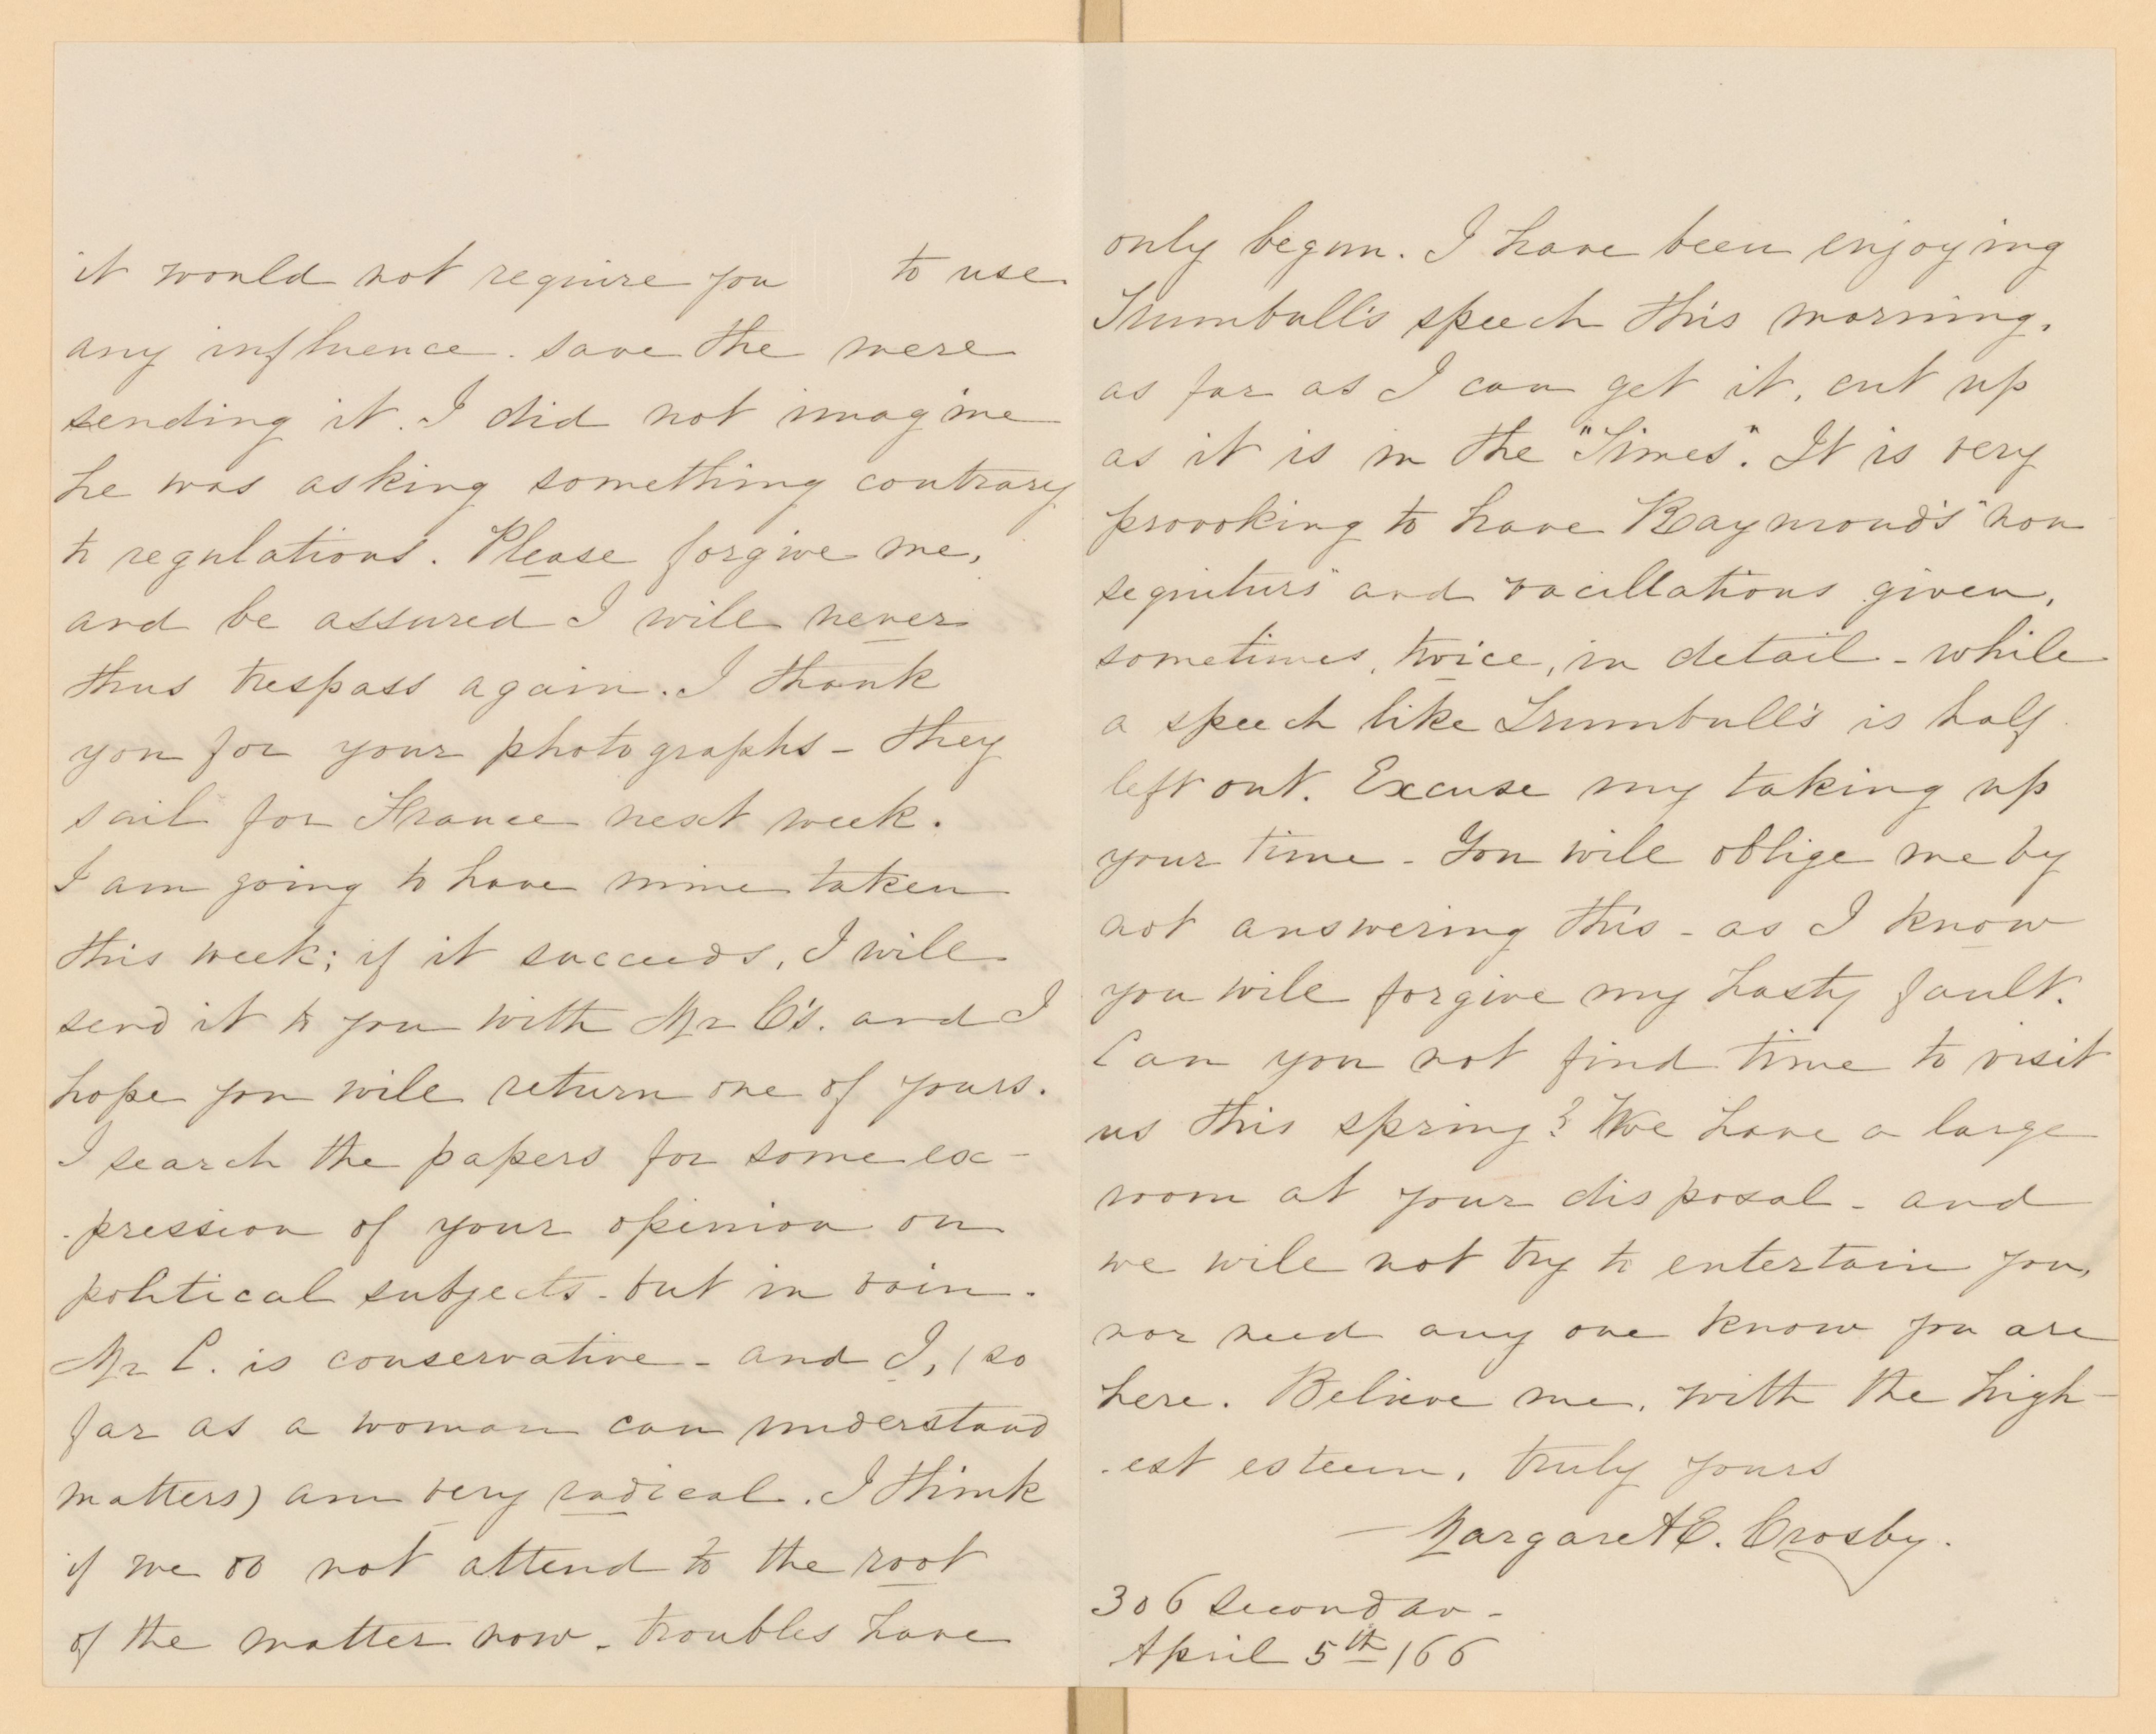 it would not require you to use
any influence. save the mere
sending it. I did not imagine
he was asking something contrary
to regulations. Please forgive me,
and be assured I will never
thus trespass again. I thank
you for your photographs - they
sail for France next week.
I am going to have mine taken
this week; if it succeeds, I will
send it to you with Mr C's. and I
hope you will return one of yours.
I search the papers for some ex-
-pression of your opinion on
political subjects - but in vain.
Mr C. is conservative - and I, (so
far as a woman can understand
matters) am very radical. I think
if we do not attend to the root
of the matter now - troubles have
only begun. I have been enjoying
Trumbull's speech this morning,
as far as I can get it, cut up
as it is in the "Times". It is very
provoking to have Raymond's "non
sequiturs" and vacillations given,
sometimes, twice, in detail - while
a speech like Trumbull's is half
left out. Excuse my taking up
your time - You will oblige me by
not answering this - as I know
you will forgive my hasty fault.
Can you not find time to visit
us this spring? We have a large
room at your disposal - and
we will not try to entertain you,
nor need any one know you are
here. Believe me, with the high-
-est esteem, truly yours
- Margaret E. Crosby.
306 second av -
April 5th /66